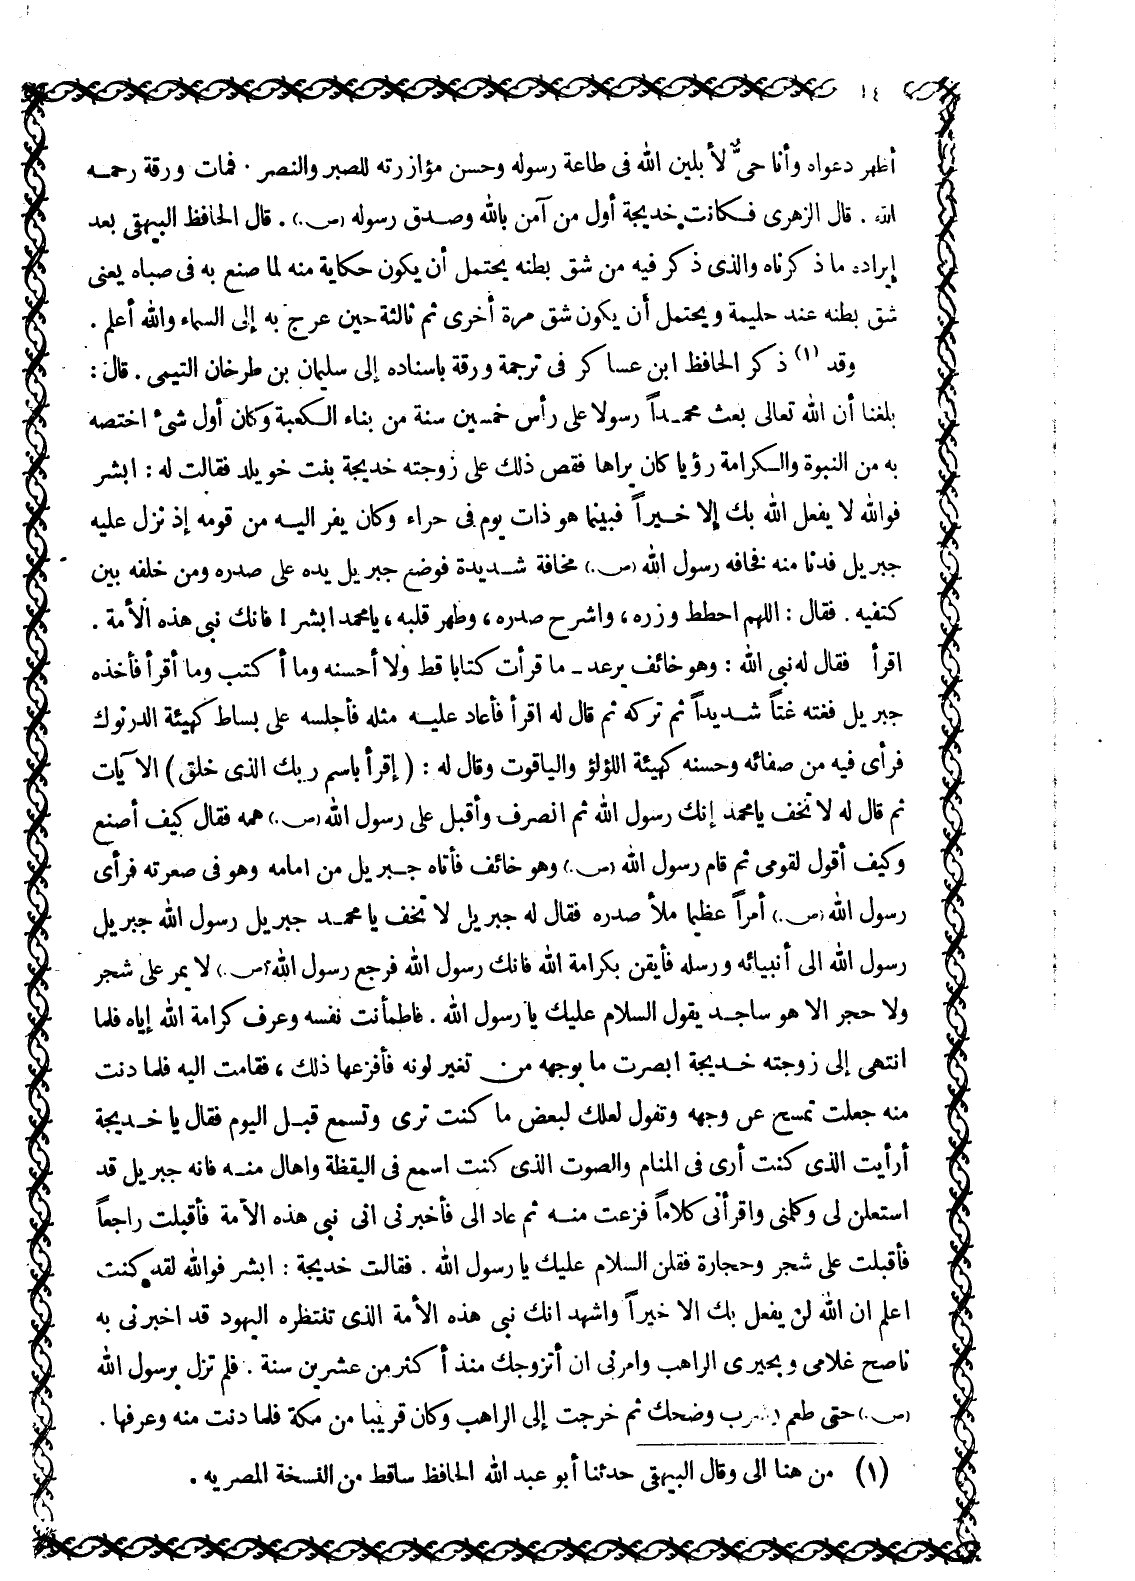 ١٤
أظهر دعواه وأنا حىٌّ لأ بلين الله فى طاعة رسوله وحسن مؤازرته للصبر والنصر . فمات ورقة رحمه
الله . قال الزهرى فكانت خديجة أول من آمن بالله وصدق رسوله (ص.) . قال الحافظ البيهقى بعد
إيراده ما ذكرناه والذى ذكر فيه من شق بطنه يحتمل أن يكون حكاية منه لما صنع به فى صباه يعنى
شق بطنه عند حليمة ويحتمل أن يكون شق مرة أخرى ثم ثالثة حين عرج به إلى السماء والله أعلم .
وقد (١) ذكر الحافظ ابن عساكر فى ترجمة ورقة باسناده إلى سليمان بن طرخان التيمى . قال :
بلغنا أن الله تعالى بعث محمداً رسولا على رأس خمسين سنة من بناء الكعبة وكان أول شىء اختصه
به من النبوة والكرامة رؤيا كان يراها فقص ذلك على زوجته خديجة بنت خويلد فقالت له : ابشر
فوالله لا يفعل الله بك إلا خيراً فبينما هو ذات يوم فى حراء وكان يفر اليه من قومه إذ نزل عليه
جبريل فدنا منه فخافه رسول الله (ص.) مخافة شديدة فوضع جبريل يده على صدره ومن خلفه بين
كتفيه . فقال : اللهم احطط وزره ، واشرح صدره ، وطهر قلبه ، يا محمد ابشر ! فانك نبى هذه الأمة .
اقرأ فقال له نبى الله : وهو خائف يرعد ـ ما قرأت كتابا قط ولا أحسنه وما أكتب وما أقرأ فأخذه
جبريل فغته غتاً شديداً ثم تركه ثم قال له اقرأ فأعاد عليه مثله فأجلسه على بساط كهيئة الدرنوك
فرأى فيه من صفائه وحسنه كهيئة اللؤلؤ والياقوت وقال له : ( إقرأ باسم ربك الذى خلق ) الآيات
ثم قال له لا تخف يا محمد إنك رسول الله ثم انصرف وأقبل على رسول الله (ص.) همه فقال كيف أصنع
وكيف أقول لقومى ثم قام رسول الله (ص.) وهو خائف فأتاه جبريل من امامه وهو فى صعرته فرأى
رسول الله (ص.) أمراً عظيما ملأ صدره فقال له جبريل لا تخف يا محمد جبريل رسول الله جبريل
رسول الله الى أنبيائه ورسله فأيقن بكرامة الله فانك رسول الله فرجع رسول الله (ص.) لا يمر على شجر
ولا حجر الا هو ساجد يقول السلام عليك يا رسول الله . فاطمأنت نفسه وعرف كرامة الله إياه فلما
انتهى إلى زوجته خديجة ابصرت ما بوجهه من تغير لونه فأفزعها ذلك ، فقامت اليه فلما دنت
منه جعلت تمسح عن وجهه وتقول لعلك لبعض ما كنت ترى وتسمع قبل اليوم فقال يا خديجة
أرأيت الذى كنت أرى فى المنام والصوت الذى كنت اسمع فى اليقظة واهال منه فانه جبريل قد
استعلن لى وكلمنى واقرأنى كلاماً فزعت منه ثم عاد الى فأخبرنى انى نبى هذه الأمة فأقبلت راجعاً
فأقبلت على شجر وحجارة فقلن السلام عليك يا رسول الله . فقالت خديجة : ابشر فوالله لقد كنت
اعلم ان الله لن يفعل بك الا خيراً واشهد انك نبى هذه الأمة الذى تنتظره اليهود قد اخبرنى به
ناصح غلامى وبحيرى الراهب وامرنى ان أتزوجك منذ أكثر من عشرين سنة . فلم تزل برسول الله
(ص.) حتى طعم وشرب وضحك ثم خرجت إلى الراهب وكان قريبا من مكة فلما دنت منه وعرفها .
(١) من هنا الى وقال البيهقى حدثنا أبو عبد الله الحافظ ساقط من النسخة المصريه .